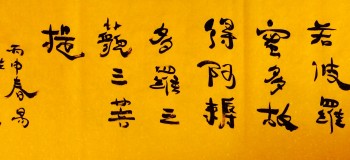 若波羅
蜜多故
得阿耨
多羅三
藐三菩
提
丙申春易